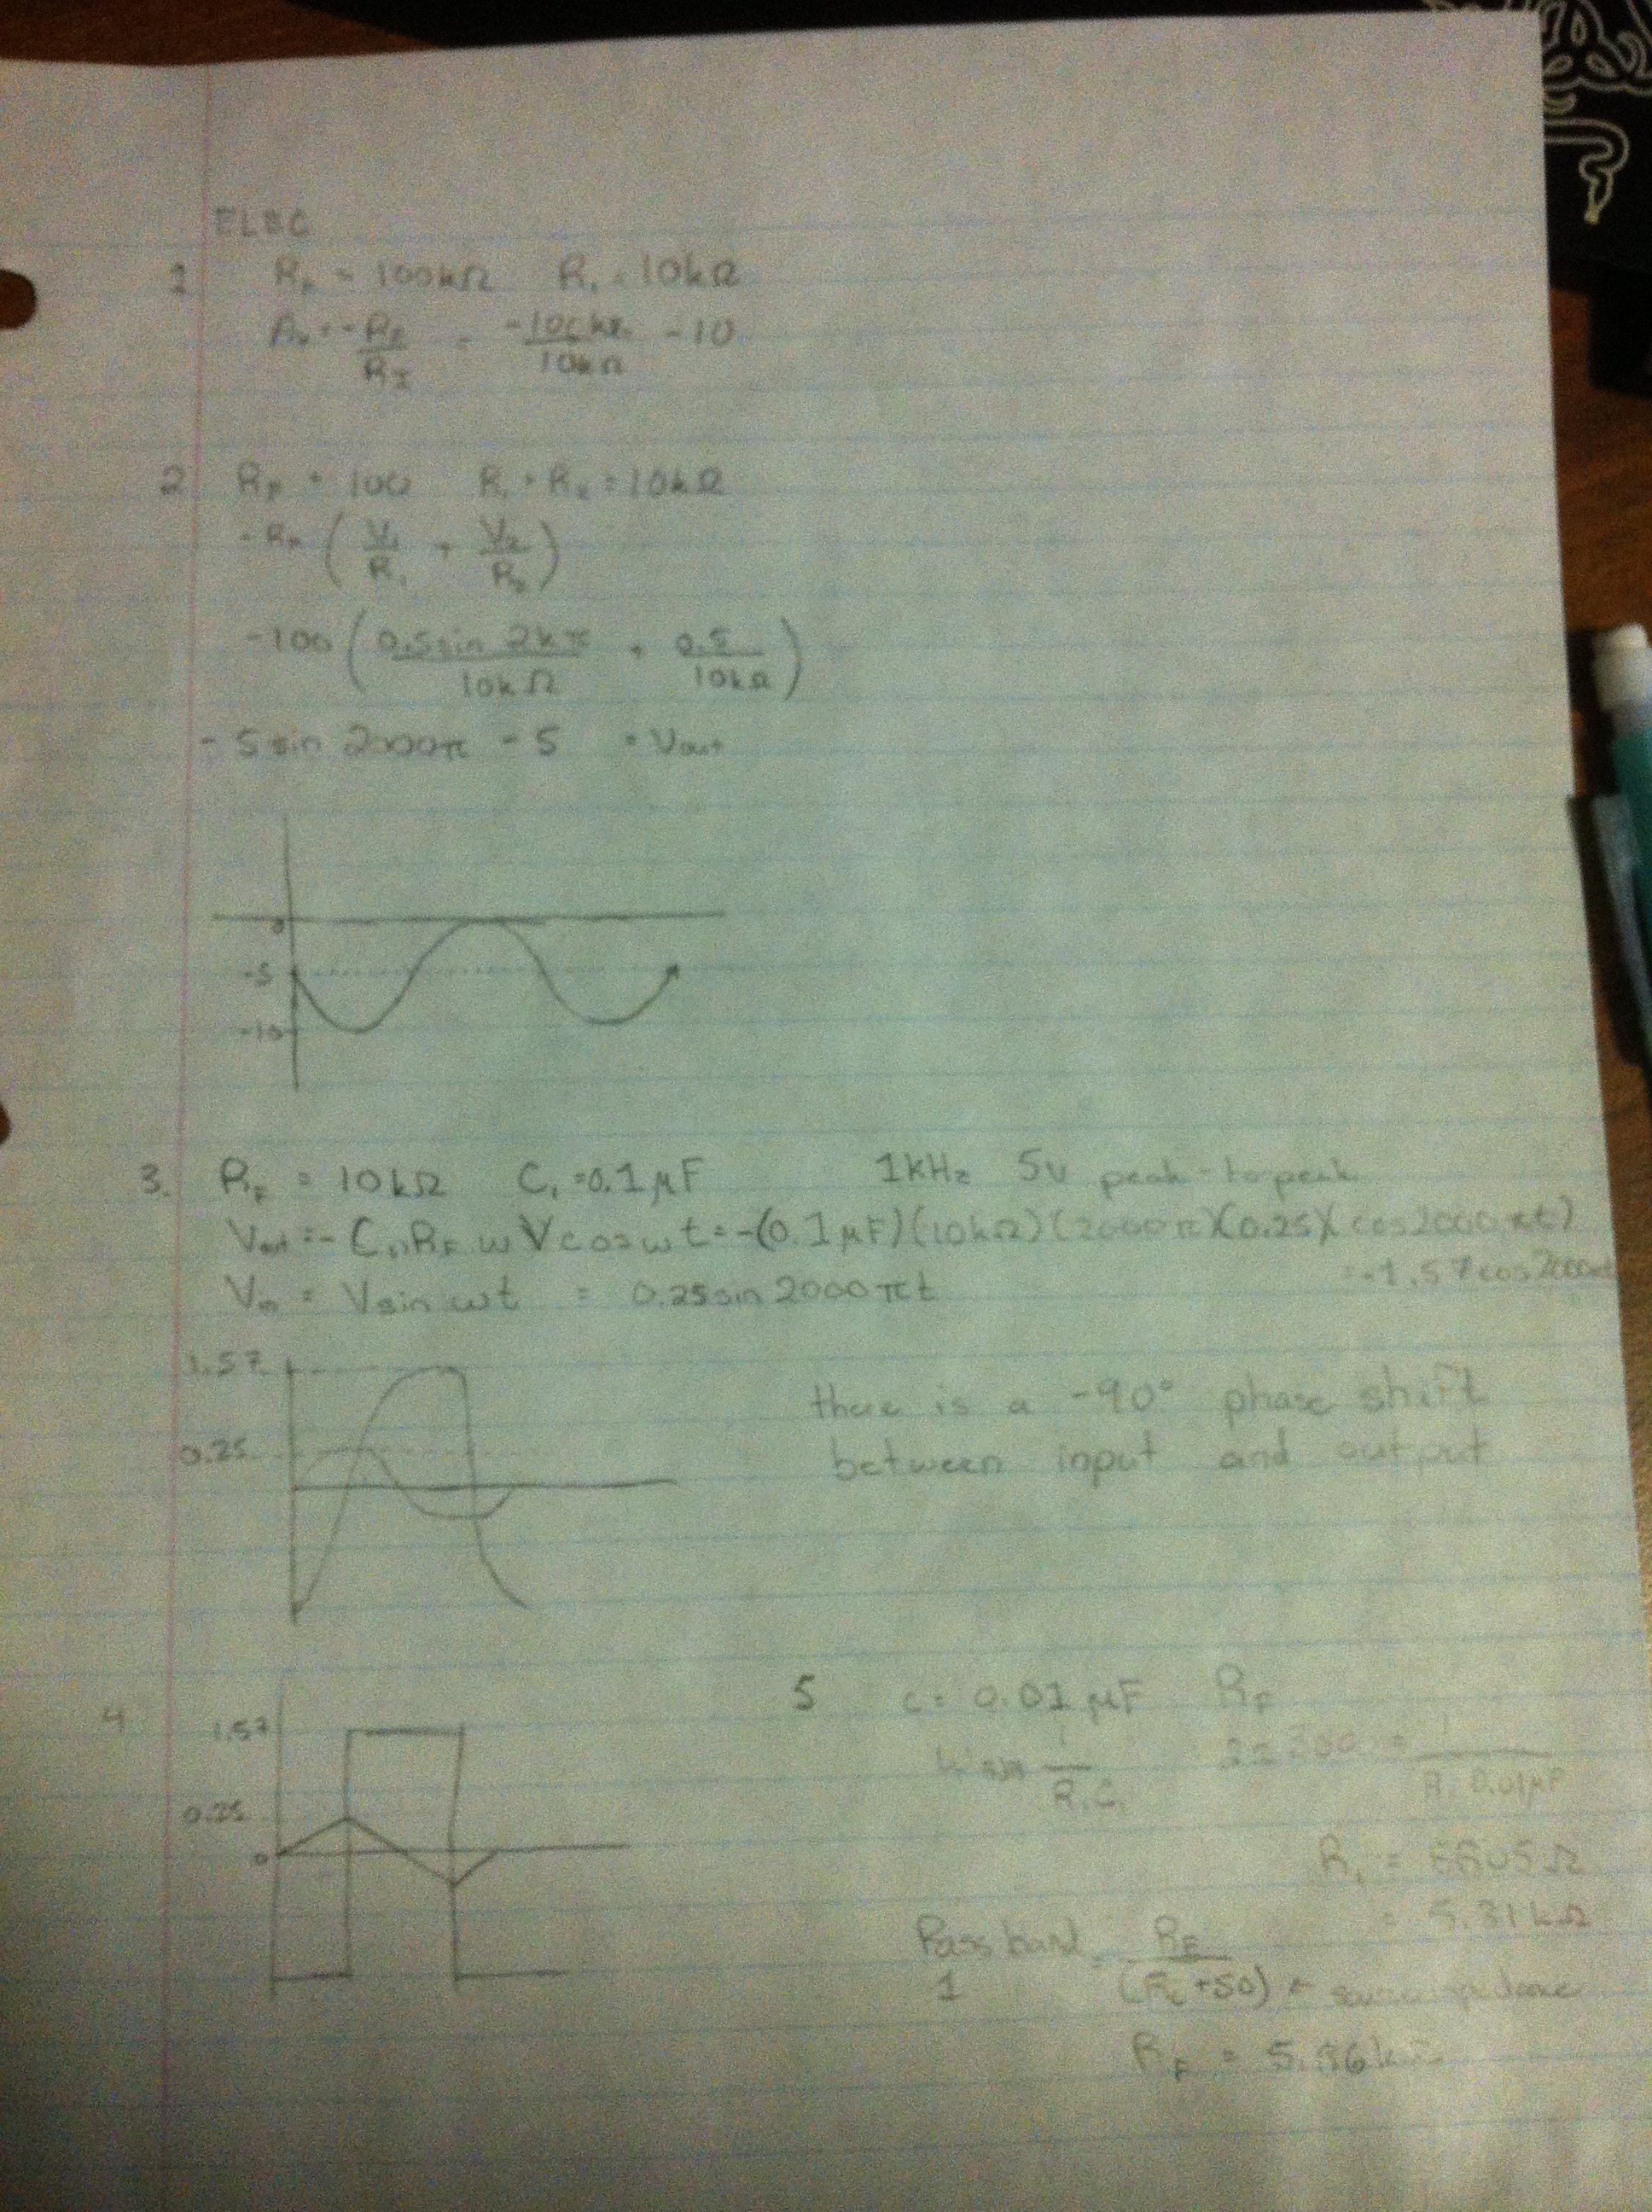 ELEC
1 R_F = 100kΩ R_1 = 10kΩ
A_v = -R_F/R_I = -100kΩ/10kΩ -10
2 R_F = 100 R_1 = R_2 = 10kΩ
-R_F (V_1/R_1 + V_2/R_2)
-100 (0.5sin 2kπ/10kΩ + 0.5/10kΩ)
-5 sin 2000π - 5 = V_out
0
-5
-10
3. R_F = 10kΩ C_1 = 0.1 μF 1kHz 5v peak-to-peak
V_out = - C_1 R_F ω V cos ω t = -(0.1 μF)(10kΩ)(2000π)(0.25)(cos 2000πt)
= -1.57cos 2000πt
V_in = V sin ωt = 0.25 sin 2000πt
1.57
0.25
there is a -90° phase shift
between input and output
4
1.57
0.25
0
5 C = 0.01 μF R_F
1/R_1C_1 = 1/R_1 0.01μF
R_1 =
= 5.31 kΩ
Pass band = R_F/(R_1 + 50) ← source impedance
1
R_F =